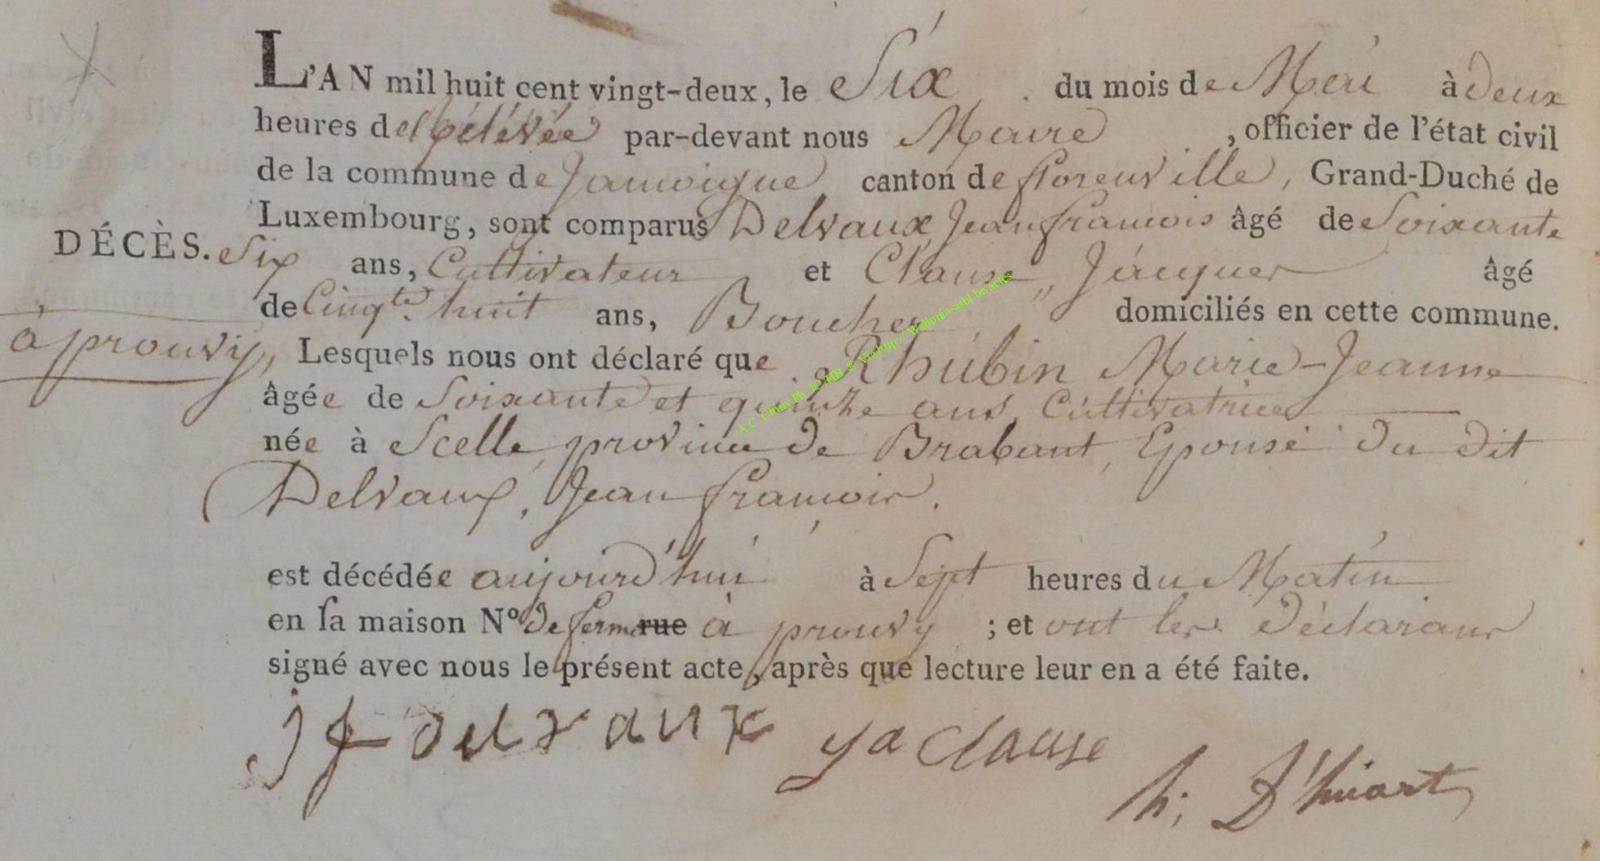 L'AN mil huit cent vingt-deux, le Six du mois de Mai à deux
heures de rélévée par-devant nous Maire, officier de l'état civil
de la commune de Jamoigne canton de florenville, Grand-Duché de
Luxembourg, sont comparus Delvaux, Jean françois âgé de Soixante
DÉCÈS. Six ans, Cultivateur et Clause, Jacques âgé
de Cinqte. huit ans, Boucher domiciliés en cette commune.
à prouvy, Lesquels nous ont déclaré que Rhubin Marie-Jeanne
âgée de Soixante et quinze ans, Cultivatrice
née à Scelle, province de Brabant, Epouse du dit
Delvaux, Jean françois.
est décédée aujourd'hui à Sept heures du Matin
en sa maison No de ferme rue à prouvy ; et ont les Déclarans
signé avec nous le présent acte, après que lecture leur en a été faite.
j f delvaux ya clause
h; D'huart